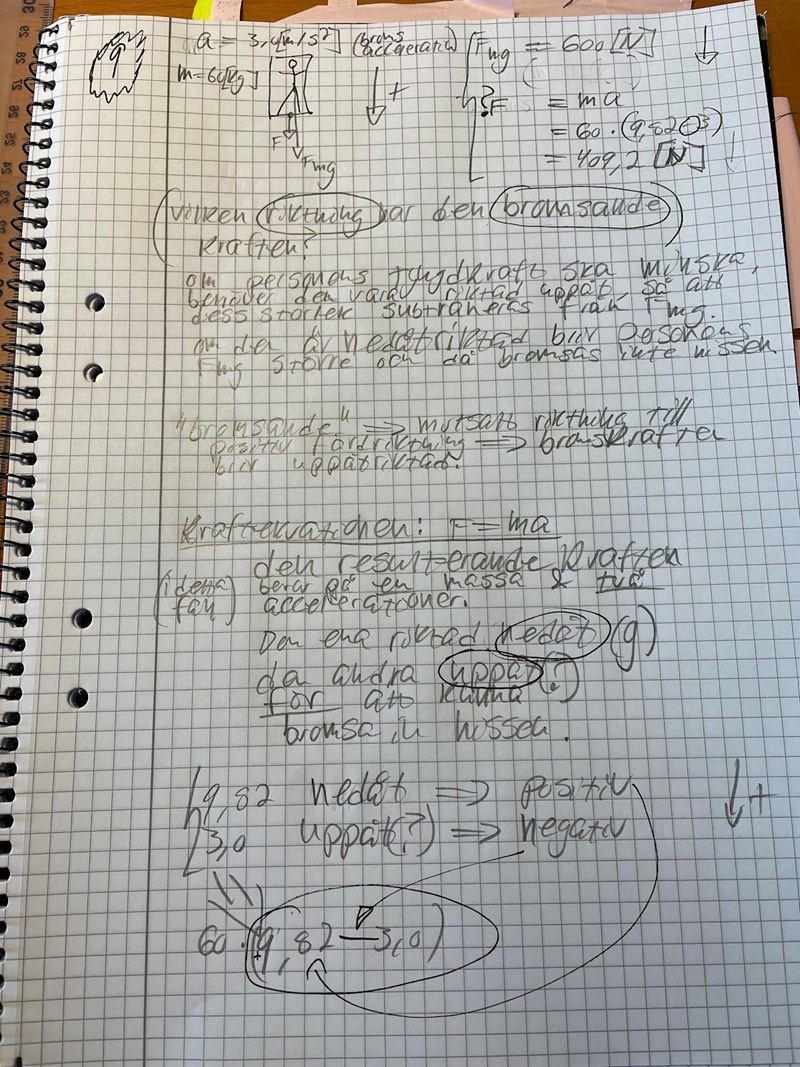 9
a = 3,0[m/s²] (broms acceleration)
m = 60[kg]
↓+
F
Fmg
Fmg = 600 [N] ↓
? F = ma
= 60 · (9,82⊖3)
= 409,2 [N] ↓
(vilken riktning har den bromsande
kraften?)
om personens tyngdkraft ska minska,
behöver den vara riktad uppåt, så att
dess storlek subtraheras från Fmg.
om den är nedåtriktad blir personens
Fmg större och då bromsas inte hissen.
"bromsande" ⇒ motsatt riktning till
positiv färdriktning ⇒ bromskraften
blir uppåtriktad.
Kraftekvationen: F = ma
den resulterande kraften
(i detta fall) beror på en massa & två
accelerationer.
Den ena riktad nedåt (g)
den andra uppåt (?)
för att kunna
bromsa in hissen.
9,82 nedåt ⇒ positiv
3,0 uppåt(?) ⇒ negativ
↓+
60 · (9,82 − 3,0)
+